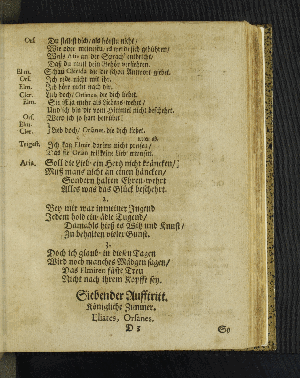 Orf. Du stellst dich/ als hörst du nicht/
Wie oder meinstu/ es werde sich gebühren/
Weils nur an der Sprach entbricht/
Daß du must dein Gehör verliehren.
Elm. Schau Clerida die dir schon Antwort giebet.
Orf. Ich rede nicht mit ihr.
Elm. Ich höre nicht nach dir.
Cler. Lieb doch/ Orsanes, die dich liebet.
Elm. Sie ist ja mehr als Liebens wehrt/
Und ich bin dir vom Himmel nicht beschehrt.
Orf. Werd ich so hart betrübt!
Elm.
Cler. } Lieb doch/ Orsanes, die dich liebet.
Tergest. Ich kan Elmir darüm nicht preisen/
Das sie Orsan wil keine Lieb erweisen.
Aria. Soll die Lieb ein Hertz nicht kräncken/
Muß mans nicht an einen häncken/
Sondern halten Ehren-wehrt
Alles was das Glück beschehrt.
2.
Bey mir war in meiner Jugend
Jedem hold ein' edle Tugend/
Damahls hieß es Witz und Kunst/
Zu behalten vieler Gunst.
3.
Doch ich glaub/ in diesen Tagen
Wird noch manches Mädgen sagen/
Das Elmiren säste Treu
Nicht nach ihrem Kopffe sey.
Siebender Aufftritt.
Königliche Zimmer.
Liliares, Orsanes.
D 3 So